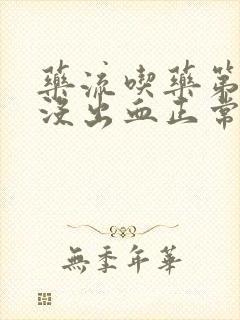 藥流喫藥第
沒出血正常
無季年華